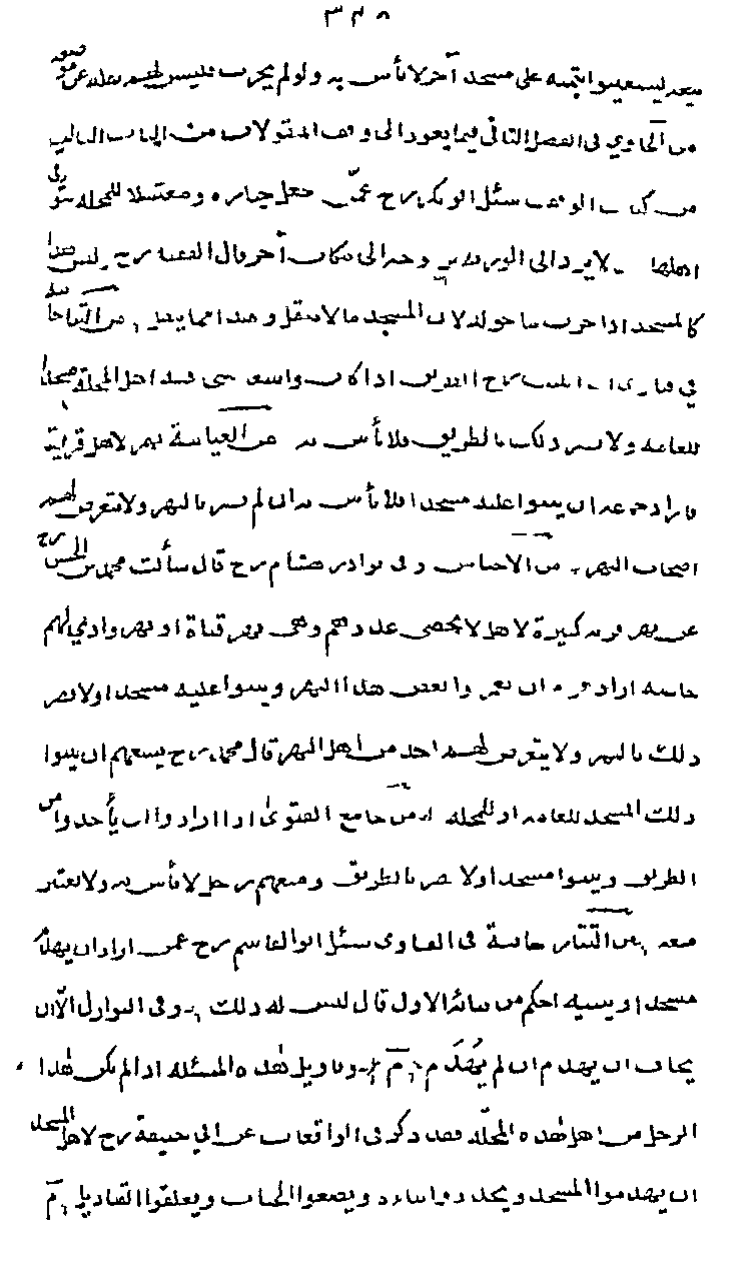 ٣٢٥
بيعه ليستعينوا بثمنه على مسجد آخر لا بأس به ولو لم يخرب فليس لهم بيعه عن موضعه
من الحاوي في الفصل الثاني فيما يعود الى وقف المنقولات من الباب الثالث
من كتاب الوقف سئل ابو بكر رح عمن جعل جنازه ومغتسلا للمحله توفي
اهلها لا يرد الى الورثة وحمل الى مكان آخر قال الفقيه رح وليس هذا
كالمسجد اذا خرب ما حوله لان المسجد مما لا ينقل وهذا مما ينقل من
في الطريق اذا كان واسعا بنى فيه اهل المحلة مسجدا
للعامه ولا يضر ذلك بالطريق فلا بأس به عن العياسة نهر لاهل قرية
فاراد جماعه ان يبنوا عليه مسجدا فلا بأس به ان لم يضر بالنهر ولا يتعرض لهم
اصحاب النهر من الاجناس وفي نوادر هشام رح قال سألت محمد بن الحسن رح
عن نهر قريه كبيرة لاهل لا يحصى عددهم وهي نهر قناة او نهر وادي لهم
خاصه اراد قوم ان يعمروا بعض هذا النهر ويبنوا عليه مسجدا ولا يضر
ذلك بالنهر ولا يتعرض لهم احد من اهل النهر قال محمد رح يسعهم ان يبنوا
ذلك المسجد للعامه او للمحله من جامع الفتوى اذا ارادوا ان يأخذوا من
الطريق ويبنوا مسجدا ولا يضر بالطريق ومنعهم رجل لا بأس به ولا يعتبر
منعه من التتارخانية في الفتاوى سئل ابو القاسم رح عمن اراد ان يهدم
مسجدا ويبنيه احكم من بنائه الاول قال ليس له ذلك وفي النوازل الا ان
يخاف ان ينهدم ان لم يهدم م وتاويل هذه المسئله اذا لم يكن هذا
الرجل من اهل هذه المحلة فقد ذكر في الواقعات عن ابي حنيفة رح لاهل المسجد
ان يهدموا المسجد ويجددوا بناءه ويضعوا الحباب ويعلقوا القناديل م